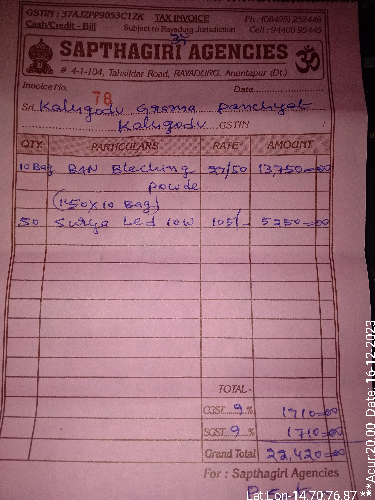 GSTIN : 37AJZPP9053C1ZK TAX INVOICE Ph : (08495) 252448
Cash/Credit - Bill Subject to Rayadurg Jurisdiction Cell : 94400 95445
SAPTHAGIRI AGENCIES
# 4-1-104, Tahsildar Road, RAYADURG, Anantapur (Dt.)
Invoice No. 78 Date
Sri Kalugodu Grama Panchyat
Kalugodu GSTIN
QTY. PARTICULARS RATE AMOUNT
10 Bag BAN Bleching 27/50 13,750=00
Powde
(1*50 X 10 Bag)
50 Surya Led 10W 105/- 5250=00
TOTAL -
CGST 9 % 1710=00
SGST 9 % 1710=00
Grand Total 22,420=00
For : Sapthagiri Agencies
Lat Lon-14.70:76.87 ***Acur 20.00 Date: 16-12-2023